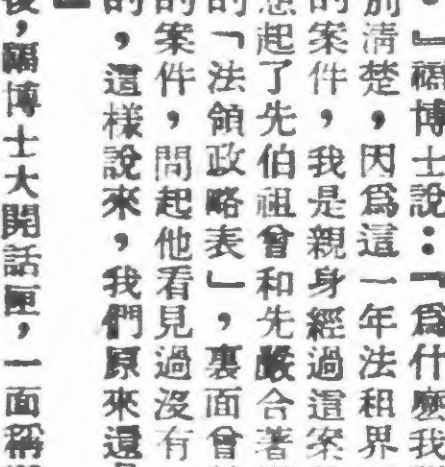 。」福博士說：「爲什麼我
別淸楚，因爲這一年法租界
的案件，我是親身經過這案
想起了先伯祖曾和先嚴合著
的「法領政略表」，裏面曾
的案件，問起他看見過沒有
的，這樣說來，我們原來還
」
後，福博士大開話匣，一面稱